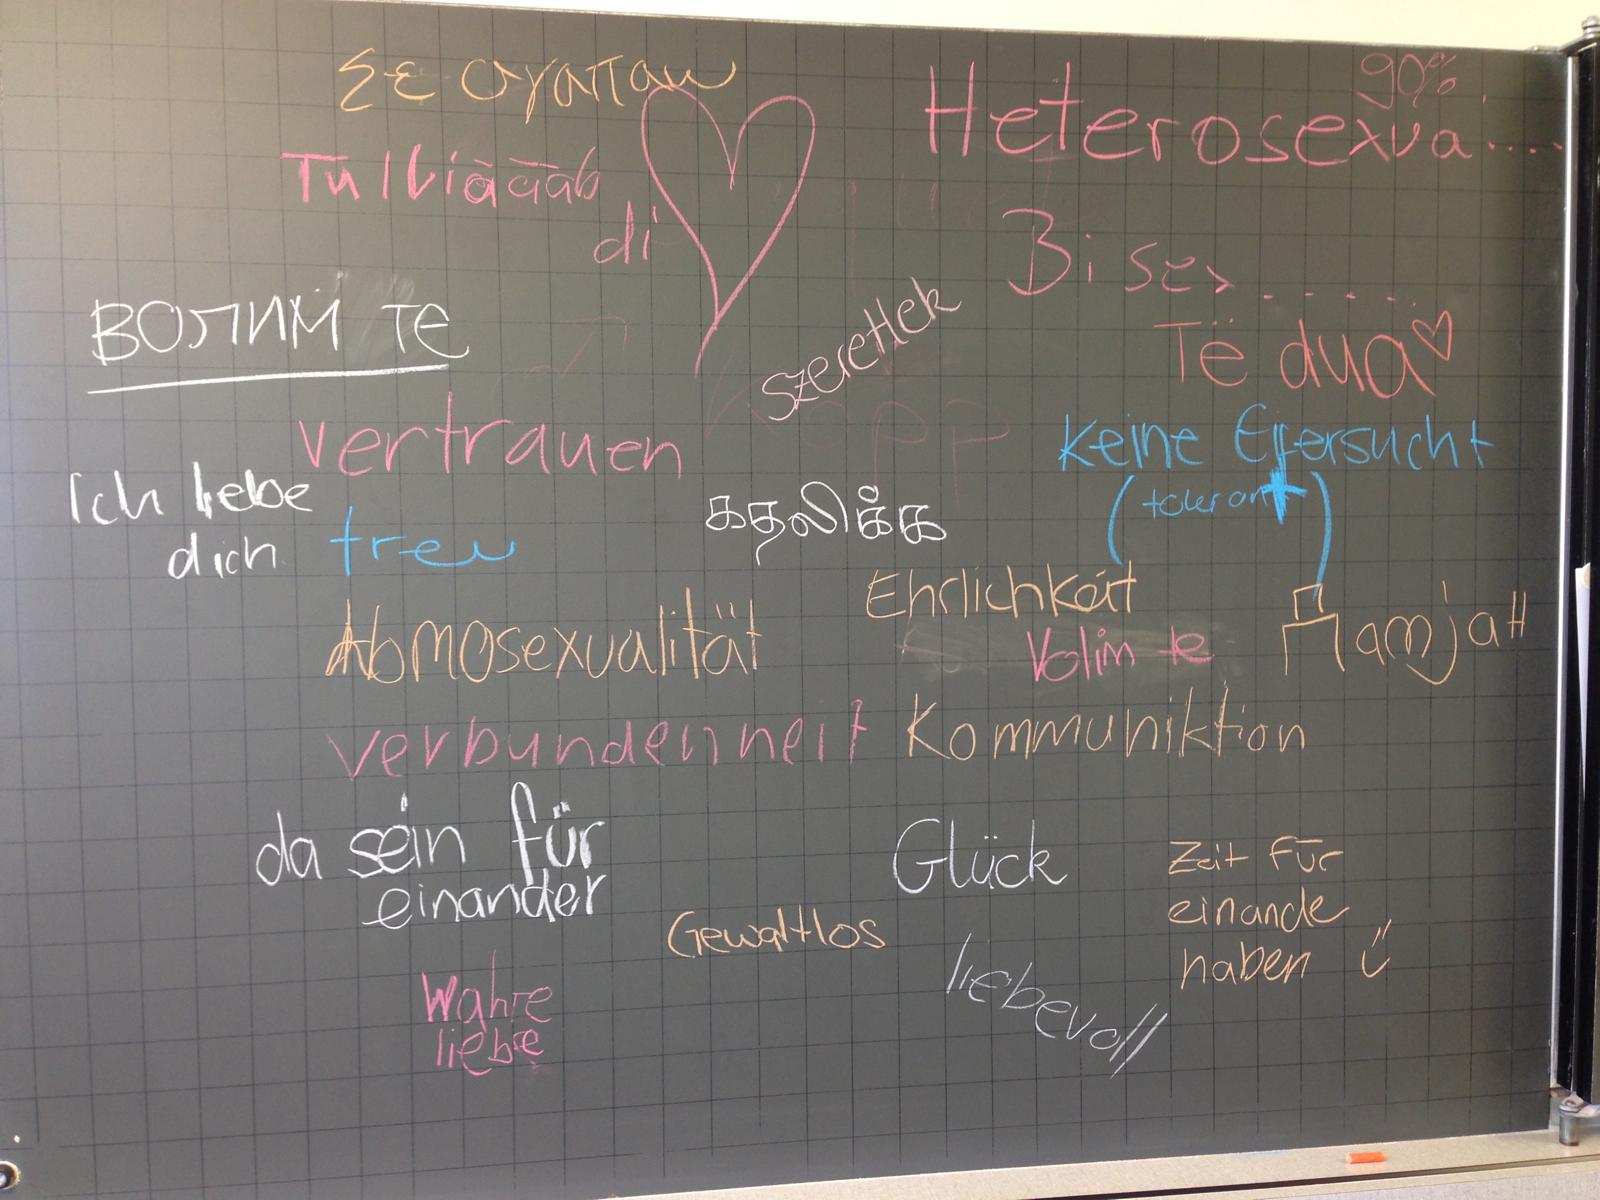 Σε αγαπαω
90%
Heterosexua....
di
Bisex.......
волим те
szeretlek
Të dua
vertrauen
keine Eifersucht
Ich liebe
dich
treu
(tolerant)
காதலிக்க
Ehrlichkeit
Homosexualität
Volim te
verbundenheit
Kommuniktion
da sein für
einander
Glück
Zeit für
einande
haben
Gewaltlos
liebevoll
Wahre
liebe